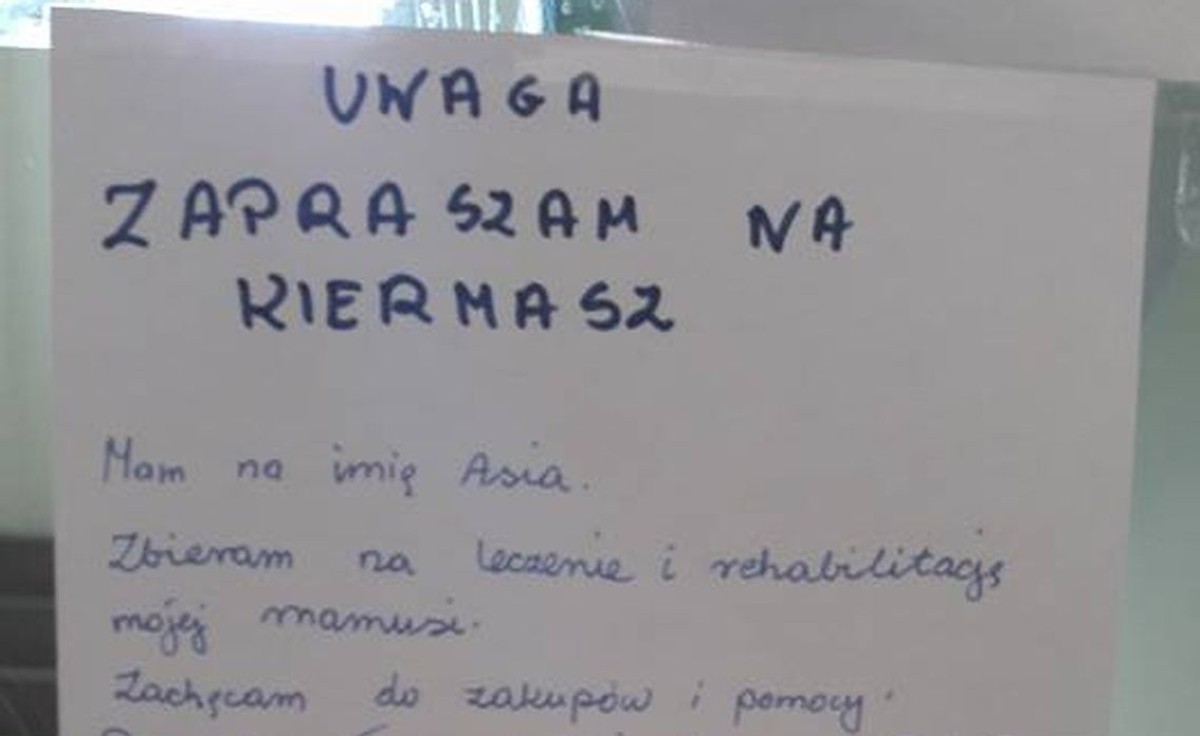 UWAGA
ZAPRASZAM NA
KIERMASZ
Mam na imię Asia.
Zbieram na leczenie i rehabilitację
mojej mamusi.
Zachęcam do zakupów i pomocy.